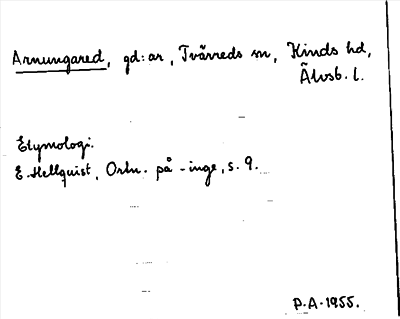 Arnungared, gd:ar, Tvärreds sn, Kinds hd,
Älvsb. l.
Etymologi.
E. Hellquist, Ortn. på -inge, s. 9.
P.A. 1955.